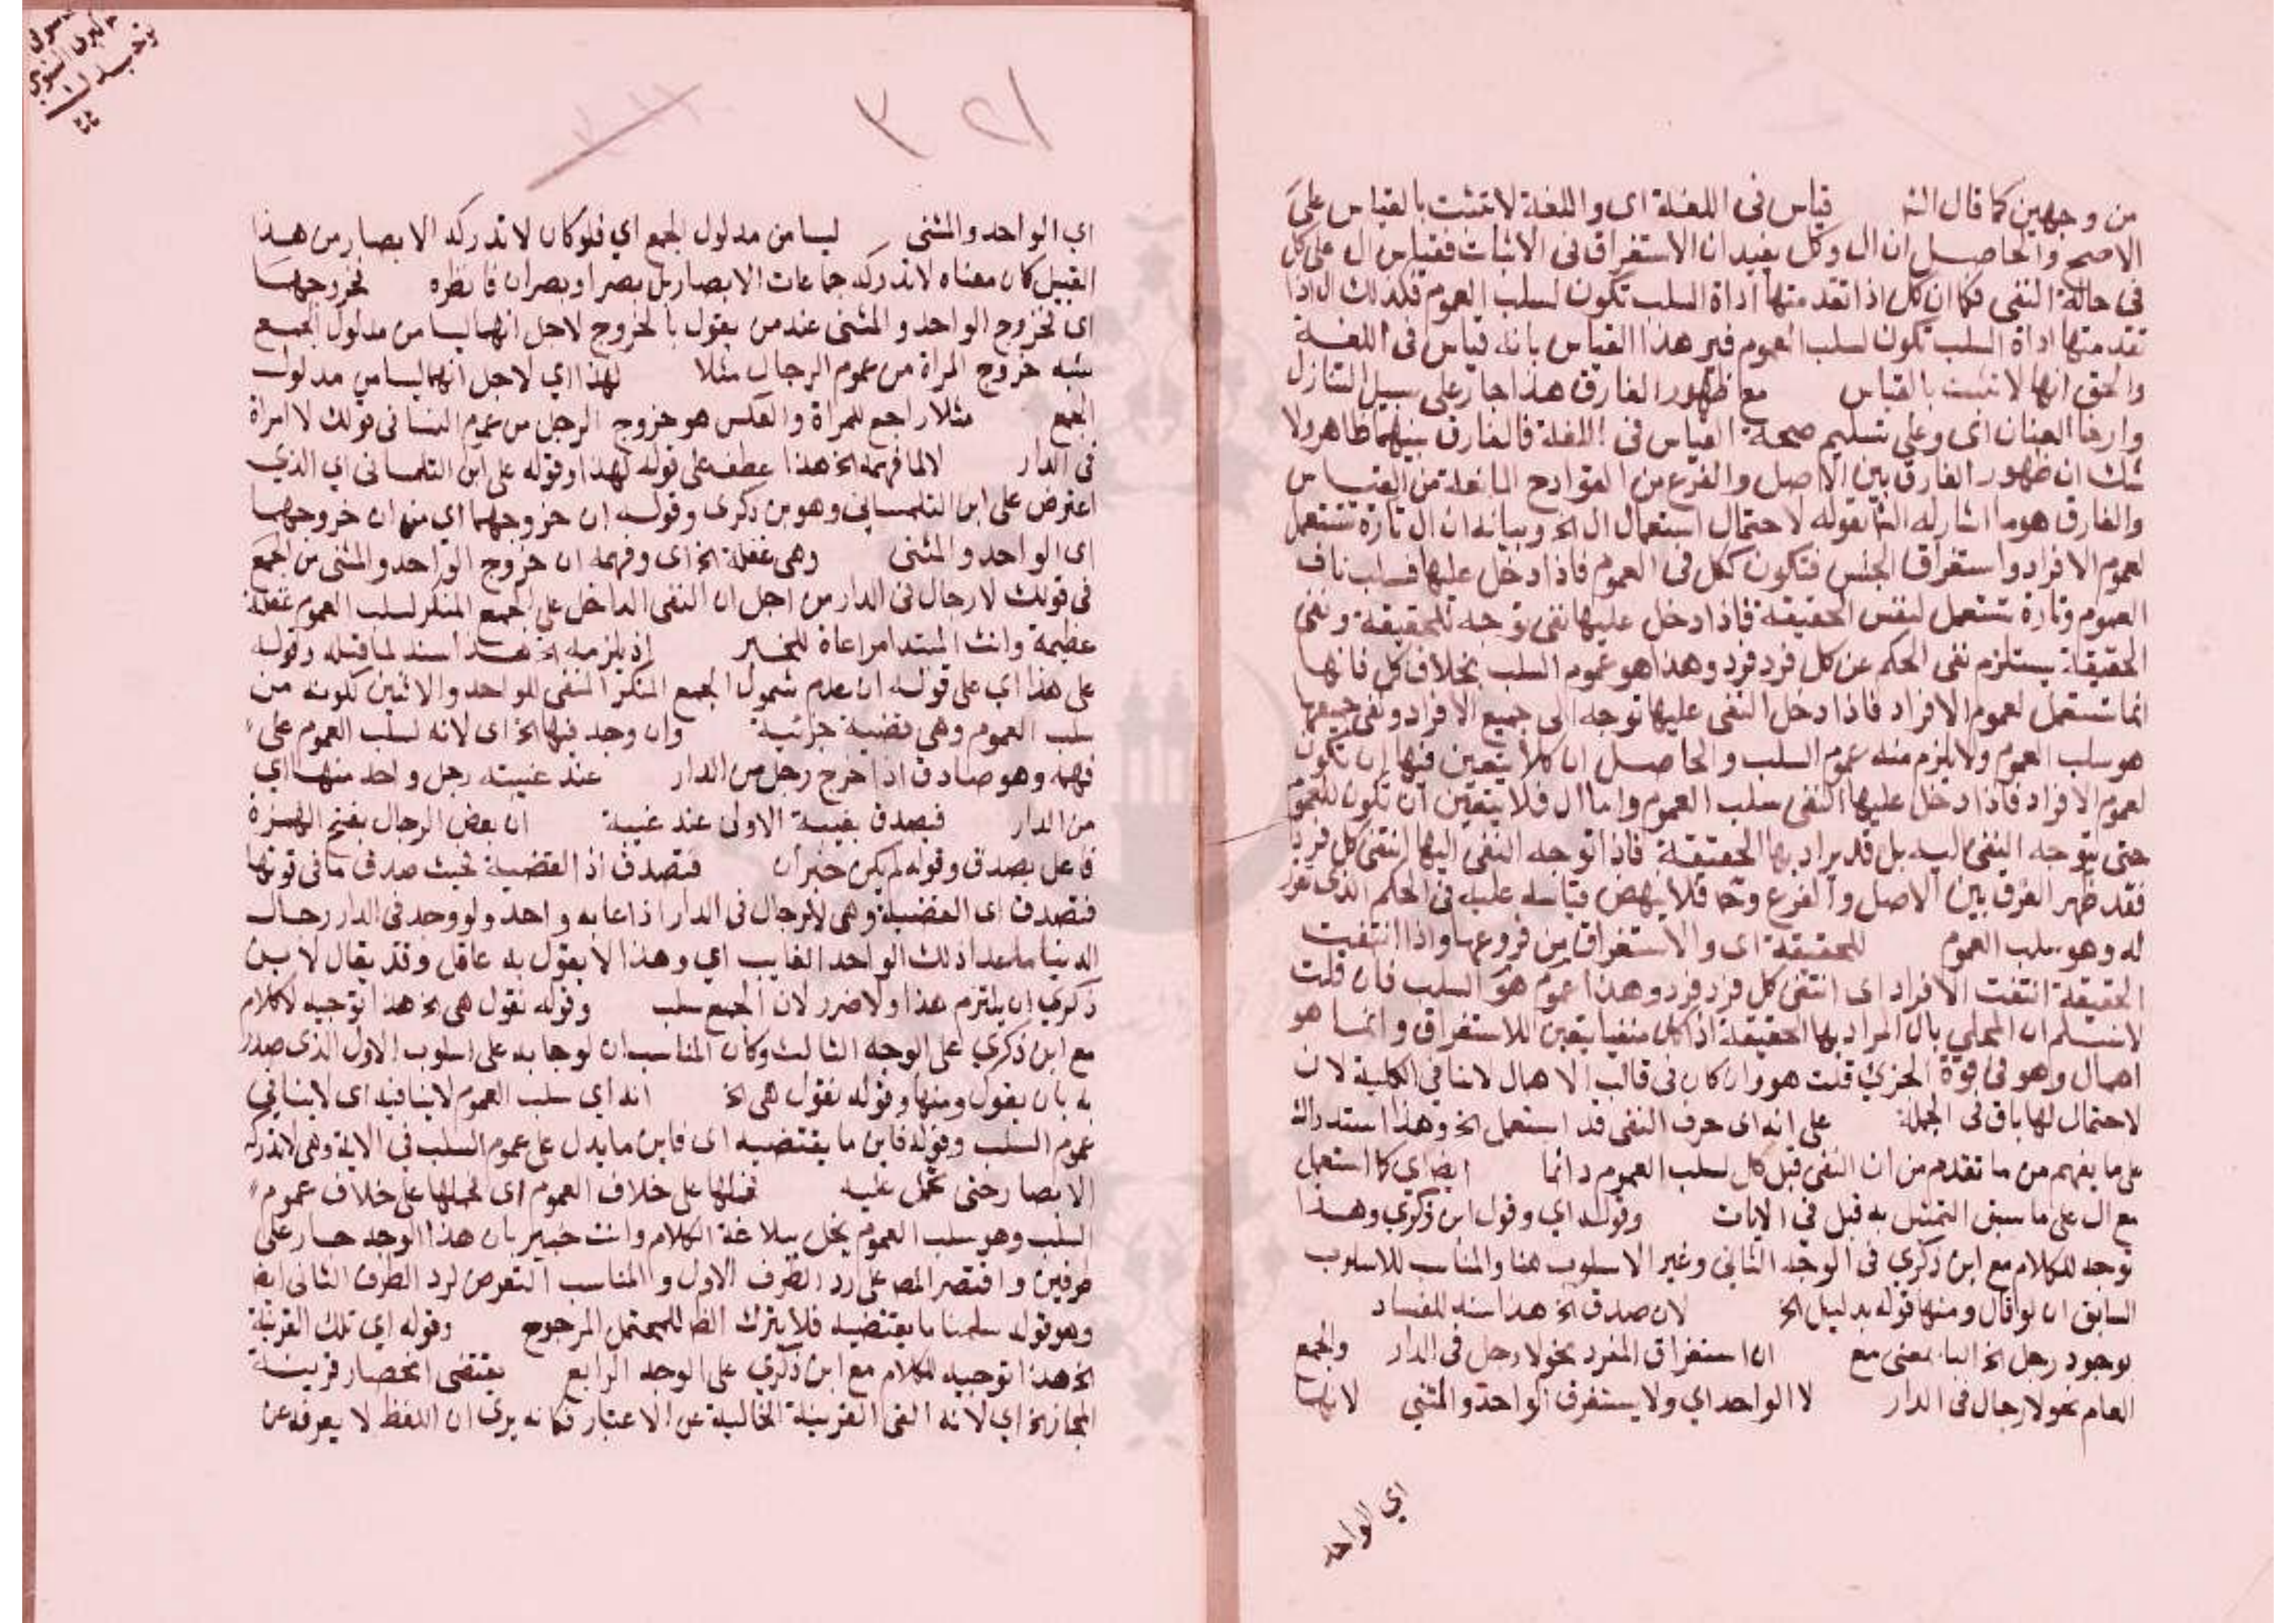 من وجهين كما قال الش قياس فى اللغة اى واللغة لا تثبت بالقياس على
الاصح والحاصل ان ال وكل يفيدان الاستغراق فى الاثبات فقياس ال على كل
فى حالة النفى فكما ان كل اذا تقدمتها اداة السلب تكون لسلب العموم فكذلك ال اذا
تقدمتها اداة السلب تكون لسلب العموم فير هذا القياس بانه قياس فى اللغة
والحق انها لا تثبت بالقياس مع ظهور الفارق هذا جار على سبيل التنازل
وارخا العنان اى وعلى تسليم صحة القياس فى اللغة فالفارق بينهما ظاهر ولا
شك ان ظهور الفارق بين الاصل والفرع من القوادح المانعة من القياس
والفارق هو ما اشار له الش بقوله لاحتمال استعمال ال الخ وبيانه ان ال تارة تستعمل
لعموم الافراد واستغراق الجنس فتكون ككل فى العموم فاذا دخل عليها سلب ناف
العموم وتارة تستعمل لنفس الحقيقة فاذا دخل عليها نفى توجه للحقيقة ونفى
الحقيقة يستلزم نفى الحكم عن كل فرد فرد وهذا هو عموم السلب بخلاف كل فانها
انما تستعمل لعموم الافراد فاذا دخل النفى عليها توجه الى جميع الافراد ونفى جميعها
هو سلب العموم ولا يلزم منه عموم السلب والحاصل ان كلا يتعين فيها ان تكون
لعموم الافراد فاذا دخل عليها النفى سلب العموم واما ال فلا يتعين ان تكون للعموم
حتى يتوجه النفى اليه بل قد يراد بها الحقيقة فاذا توجه النفى اليها انتفى كل فرد
فقد ظهر الفرق بين الاصل والفرع وح فلا ينهض قياسه عليه فى الحكم الذى
له وهو سلب العموم للحقيقة اى والاستغراق من فروعها واذا انتفيت
الحقيقة انتفت الافراد اى انتفى كل فرد فرد وهذا عموم هو السلب فان قلت
لا نسلم ان المحلي بال المراد بها الحقيقة اذا كان منفيا يتعين للاستغراق وانما هو
اهمال وهو فى قوة الجزئ قلت هو وان كان فى قالب الاهمال لا ينافي الكلية لان
لاحتمال لها باق فى الجملة على انه اى حرف النفى قد استعمل الخ وهذا استدراك
على ما يفهم من ما تقدم من ان النفى قبل كل لسلب العموم دائما ايض اي كما استعمل
مع ال على ما سبق التمثيل به قبل في الايات وقوله اي وقول ابن ذكري وهذا
توجه للكلام مع ابن ذكري فى الوجه الثاني وغير الاسلوب هنا والمناسب للاسلوب
السابق ان لو قال ومنها قوله بدليل الخ لان صدق الخ هذا سند للفساد
بوجود رجل الخ البا بمعنى مع ان استغراق المفرد نحو لا رجل فى الدار والجمع
العام نحو لا رجال فى الدار لا الواحد اي ولا يستغرق الواحد والمثني لانهما
اي الواحد
٣٢١
اي الواحد والمثنى ليسا من مدلول الجمع اي فلو كان لا تدركه الابصار من هذا
القبيل كان معناه لا تدركه جماعات الابصار بل بصر او بصران فانظره لخروجهما
اى لخروج الواحد والمثنى عند من يقول بالخروج لاجل انهما ليسا من مدلول الجمع
شبه خروج المراة من عموم الرجال مثلا لهذا اي لاجل انهما ليسا من مدلول
الجمع مثلا راجع للمراة والعكس هو خروج الرجل من عموم النسا فى قولك لا امراة
فى الدار لا لما فهمه الخ هذا عطف على قوله لهذا وقوله على ابن التلمسانى اي الذي
اعترض على ابن التلمسانى وهو بن ذكرى وقوله ان خروجهما اي من ان خروجهما
اى الواحد والمثنى وهى غفلة الخ اى وفهمه ان خروج الواحد والمثنى من الجمع
فى قولك لا رجال فى الدار من اجل ان النفى الداخل على الجمع المنكر لسلب العموم غفلة
عظيمة وانث المبتدا مراعاة للخبر اذ يلزمه الخ هذا سند لما قبله وقوله
على هذا اي على قوله ان عدم شمول الجمع المنكر المنفى للواحد والاثنين لكونه من
سلب العموم وهى قضية جزئية وان وجد فيها الخ اى لانه لسلب العموم على
فهمه وهو صادق اذا خرج رجل من الدار عند غيبته رجل واحد منها اي
من الدار فيصدق بغيبة الاولى عند غيبة ان بعض الرجال بفتح الهمزة
فاعل يصدق وقوله لم يكن خبر ان فتصدق اذ القضية بحيث صدق ما فى قوتها
فتصدق اى القضية وهى لا رجال فى الدار اذا غابه واحد ولو وجد فى الدار رجال
الدنيا ما عدا ذلك الواحد الغايب اي وهذا لا يقول به عاقل وقد يقال لا بن
ذكري ان يلتزم هذا ولا ضرر لان الجمع سلب وقوله نقول هى الخ هذا توجيه لكلام
مع ابن ذكري على الوجه الثالث وكان المناسب ان لو جا به على اسلوب الاول الذى صدر
به بان يقول ومنها وقوله نقول هى الخ انه اي سلب العموم لا ينافيه اى لا ينافي
عموم السلب وقوله فاين ما يقتضيه اى فاين ما يدل على عموم السلب في الاية وهى لا تدركه
الابصار حتى تحمل عليه فحملها على خلاف العموم اى فحملها على خلاف عموم
السلب وهو سلب العموم يخل ببلاغة الكلام وانت خبير بان هذا الوجه جار على
طرفين واقتصر المص على رد الطرف الاول والمناسب التعرض لرد الطرف الثانى ايض
وهو قوله سلمنا ما يقتضيه فلا يترك الظ للمحتمل المرجوح وقوله اي تلك القرينة
الخ هذا توجيه للكلام مع ابن ذكري على الوجه الرابع يقتضى انحصار قرينة
المجاز الخ اي لانه الغى القرينة الحالية عن الاعتبار فكانه يرى ان اللفظ لا يعرفه عن